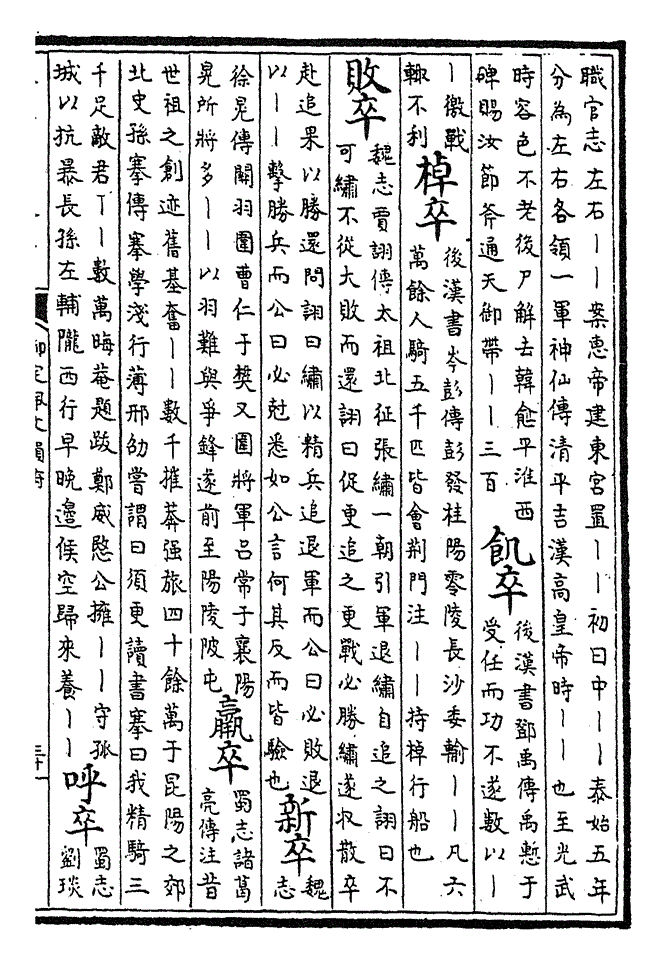 職官志左右丨丨案惠帝建東宮置丨丨初曰中丨丨泰始五年
分為左右各領一軍神仙傳清平吉漢高皇帝時丨丨也至光武
時容色不老後尸解去韓愈平淮西
碑賜汝節斧通天御帶丨丨三百
飢卒
後漢書鄧禹傳禹慙于
受任而功不遂數以丨
丨徼戰
輙不利
棹卒
後漢書岑彭傳彭發桂陽零陵長沙委輸丨丨凡六
萬餘人騎五千匹皆會荆門注丨丨持棹行船也
敗卒
魏志賈詡傳太祖北征張繡一朝引軍退繡自追之詡曰不
可繡不從大敗而還詡曰促更追之更戰必勝繡遂收散卒
赴追果以勝還問詡曰繡以精兵追退軍而公曰必敗退
以丨丨擊勝兵而公曰必尅悉如公言何其反而皆驗也
新卒
魏
志
徐晃傳關羽圍曹仁于樊又圍將軍吕常于襄陽
晃所將多丨丨以羽難與爭鋒遂前至陽陵陂屯
羸卒
蜀志諸葛
亮傳注昔
世祖之創迹舊基奮丨丨數千摧莽强旅四十餘萬于昆陽之郊
北史孫搴傳搴學淺行薄邢劭嘗謂曰須更讀書搴曰我精騎三
千足敵君丨丨數萬晦菴題跋鄭威愍公擁丨丨守孤
城以抗暴長孫左輔隴西行早晚邊候空歸來養丨丨
呼卒
蜀志
劉琰
御定佩文韻府